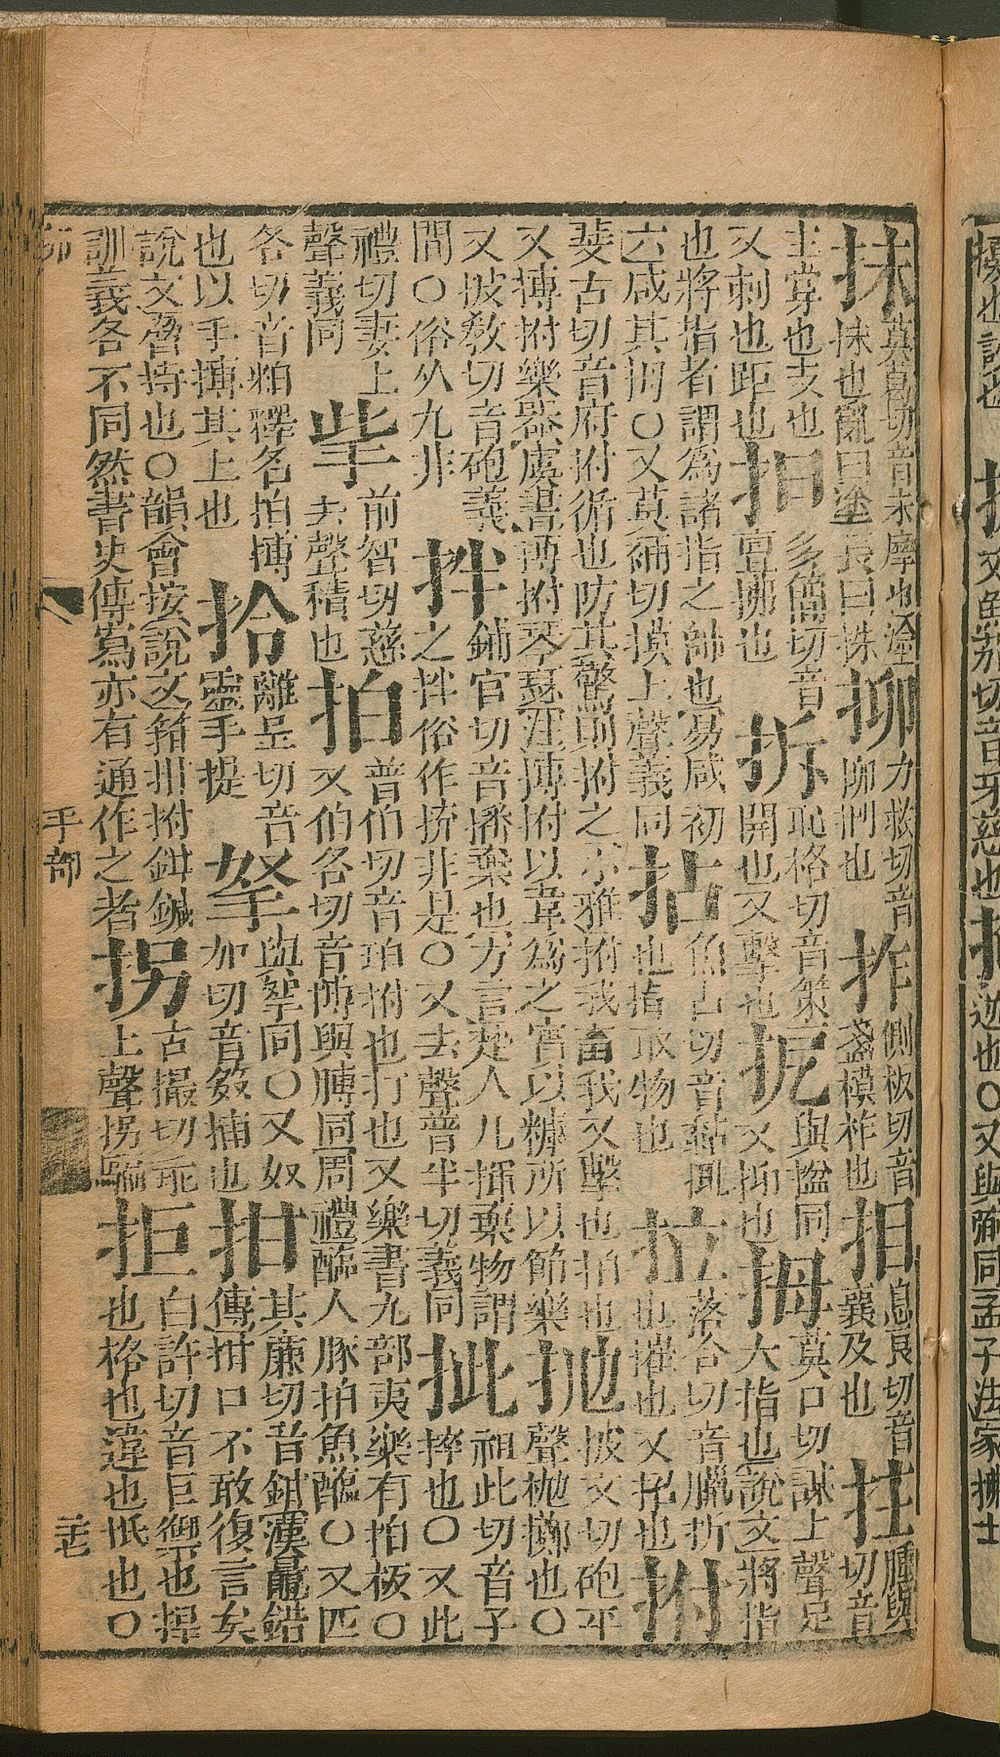 抹莫葛切音末摩也塗抹也亂曰塗長曰抹 力救切音捫也 拃側板切音盞模拃也 息良切音襄及也 拄腫與切音
主掌也支也又刺也距也 担多簡切音亶拂也 拆恥格切音策開也又擊也 㧖與搤同又抑也 拇莫口切謀上聲足大指也說文將指
也將指者謂爲諸指之帥也易咸初六咸其拇〇又莫補切摸上聲義同 拈魚占切音黏也指取物也 拉落合切音臘折也摧也又招也 拊
斐古切音府拊循也防其驚則拊之尒雅拊我畜我又擊也拍也又搏拊樂器虞書搏拊琴瑟注搏拊以韋爲之實以糠所以節樂 抛披交切砲平聲抛擲也〇
又披敎切音砲義同〇俗从九非 拌鋪官切音潘棄也方言楚人凡揮棄物謂之拌俗作拚非是〇又去聲普半切義同 㧗祖此切音子捽也〇又此
禮切妻上聲義同 㧘前智切慈去聲積也 拍普伯切音珀拊也打也又樂書九部夷樂有拍板〇又伯各切音博與膊同周禮醢人豚拍魚醢〇又匹
各切音粕釋名拍搏也以手搏其上也 拎離呈切音靈手提 拏與挐同〇又奴加切音捕也 拑其廉切音鉗漢鼂錯傳拑口不敢復言矣
說文脅持也〇韻會按說文箝拑拊鉗鍼訓義各不同然書史傳寫亦有通作之者 拐古撮切乖上聲拐騙 拒白許切音巨禦也捍也格也違也抵也〇
卯 手部